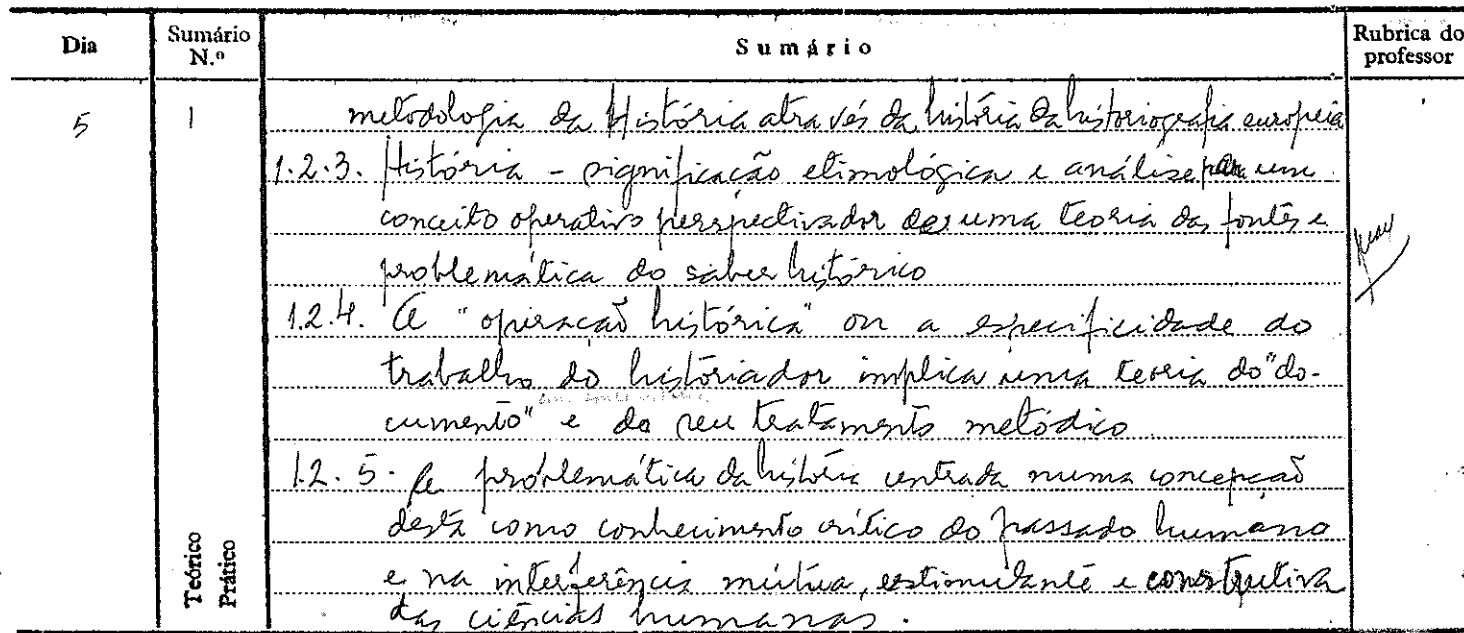 Dia
Sumário N.º
Sumário
Rubrica do professor
5
1
metodologia da História através da história da historiografia europeia
1.2.3. História - significação etimológica e análise para um
conceito operativo perspectivador de uma teoria das fontes e
problemática do saber histórico
1.2.4. A "operação histórica" ou a especificidade do
trabalho do historiador implica uma teoria do "do-
cumento" e do seu tratamento metódico
1.2.5. A problemática da história centrada numa concepção
desta como conhecimento crítico do passado humano
e na interferência mútua, estimulante e construtiva
das ciências humanas.
Teórico
Prático